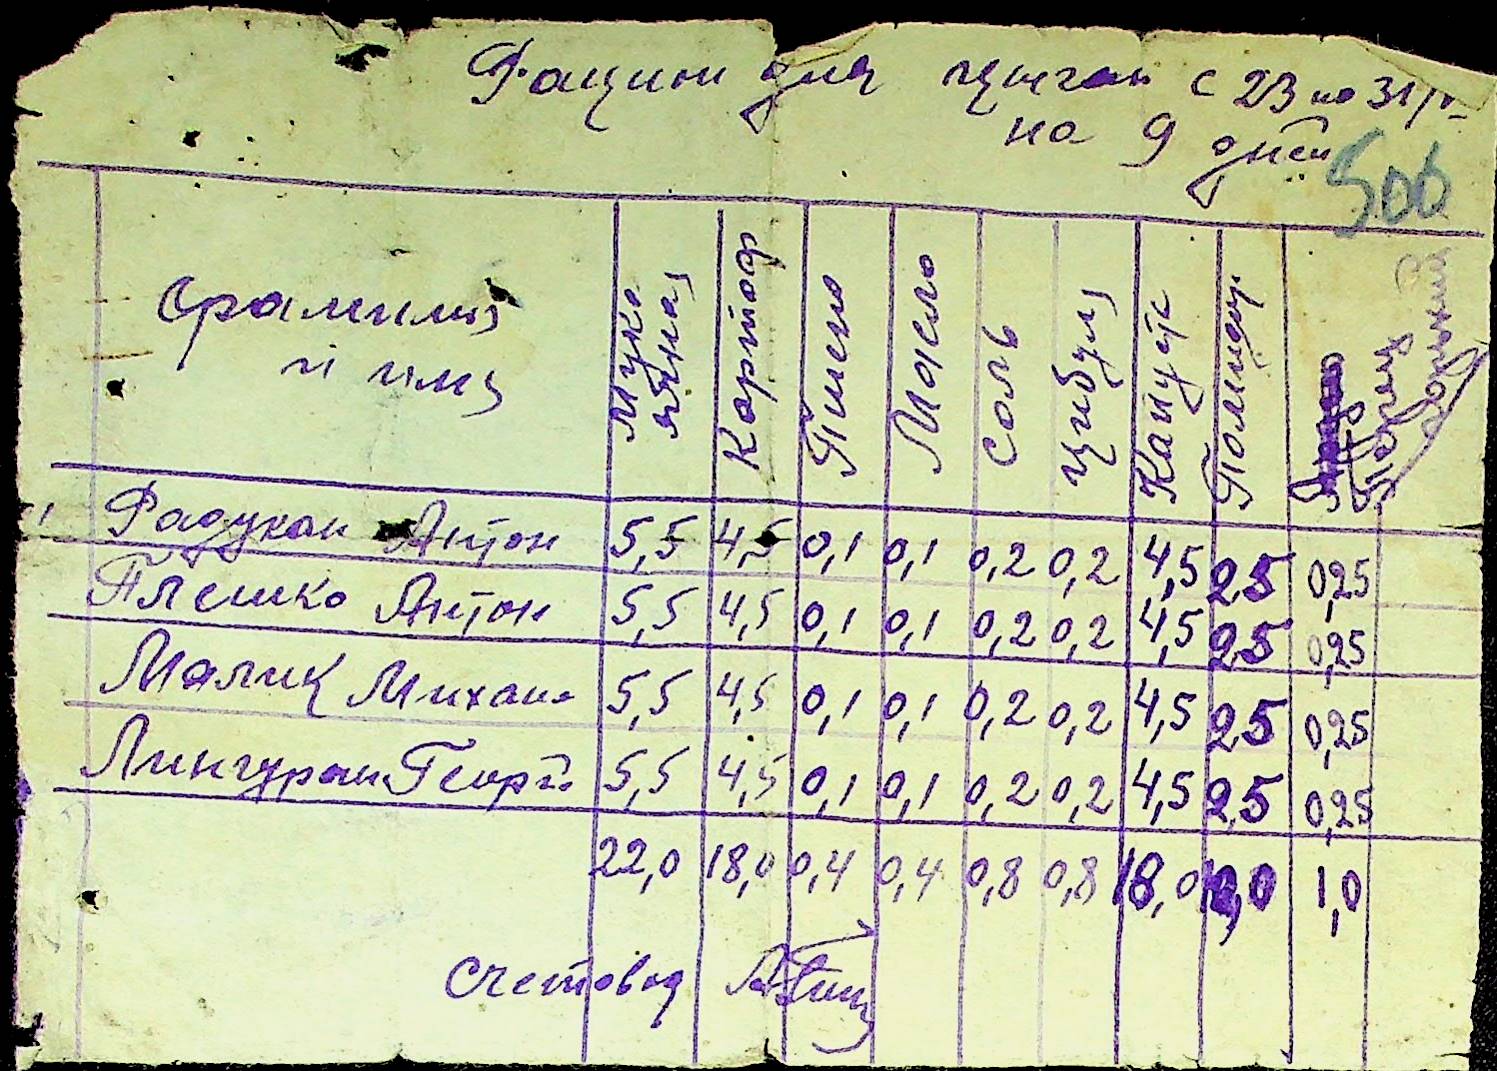 Рацион для цыган с 23 по 31/
на 9 дней
506
Фамилия
и имя
Мука
ячная
Картоф
Пшено
Масло
Соль
Цибуля
Капуста
Помидор
Радукан Антон 5,5 4,5 0,1 0,1 0,2 0,2 4,5 2,5 0,25
Плешко Антон 5,5 4,5 0,1 0,1 0,2 0,2 4,5 2,5 0,25
Малик Михаил 5,5 4,5 0,1 0,1 0,2 0,2 4,5 2,5 0,25
Лингуран Георг. 5,5 4,5 0,1 0,1 0,2 0,2 4,5 2,5 0,25
22,0 18,0 0,4 0,4 0,8 0,8 18,0 10,0 1,0
Счетовод